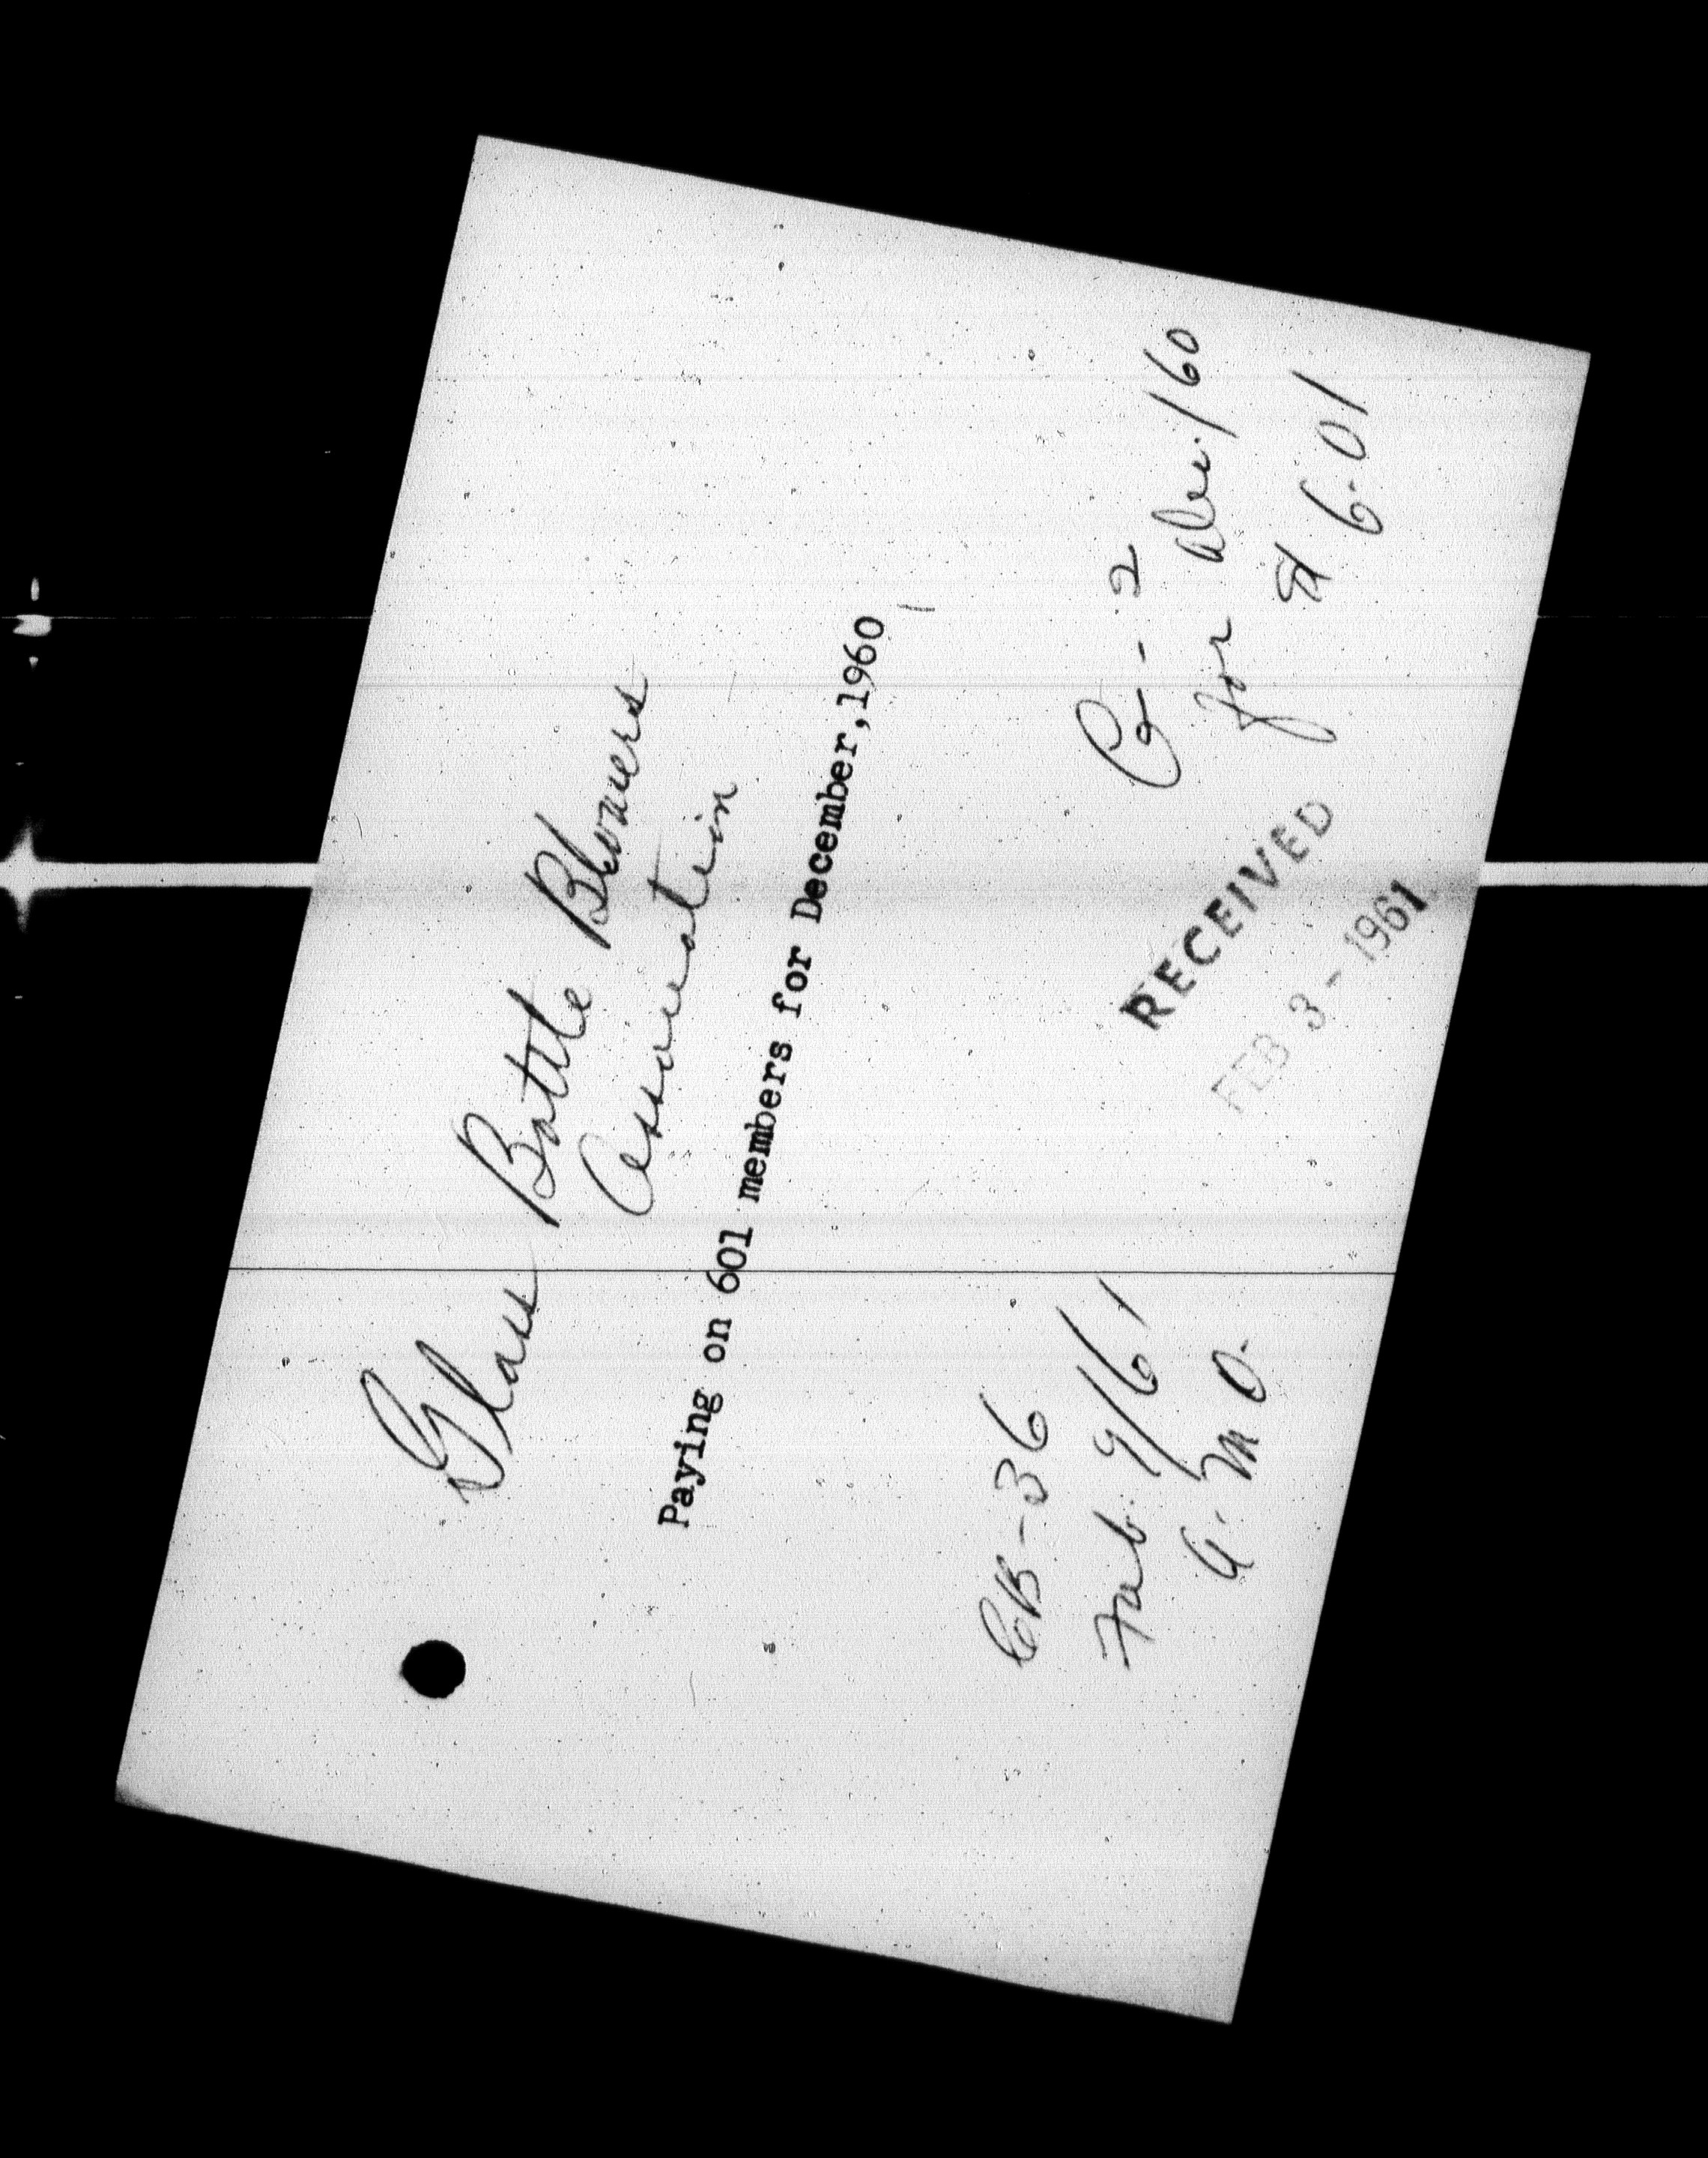 Glass Bottle Blowers
Association
Paying on 601 members for December,1960
CB-36
Feb. 9/61
A. M O.
- 2
for Dec. /60
6.01
RECEIVED
FEB 3 - 1961